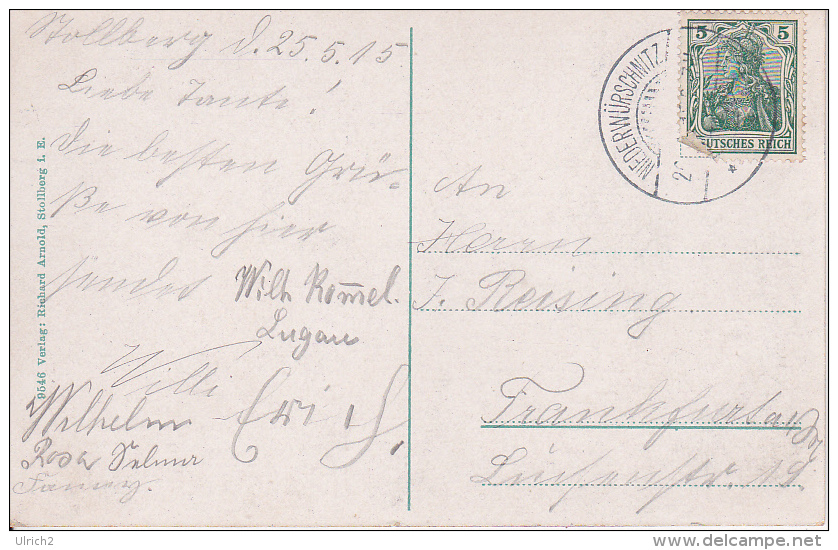 Stollberg d. 25.5.15
Liebe Tante!
Die besten Grü-
ße von hier
sendet
Wilh Rom̅el.
Lugau
Willi
Wilhelm Erich.
Rosa Selmar
Fanny.
9546 Verlag: Richard Arnold, Stollberg i. E.
NIEDERWÜRSCHNITZ
5 5
DEUTSCHES REICH
An
Herrn
J. Reising
Frankfurt a/M
Luisenstr. 19.
Ulrich2
www.delcampe.net